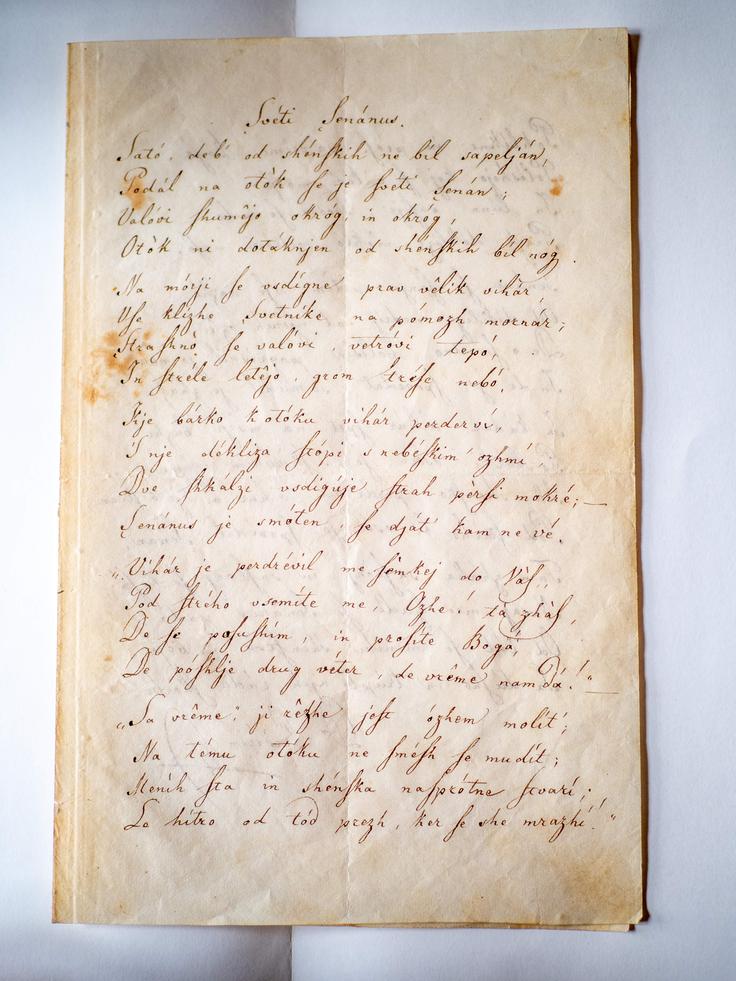 Svéti Senánus.
Sató, deb' od shénſkih ne bil sapelján,
Podál na otòk ſe je ſvéti Senán;
Valóvi ſhumêjo okróg, in okróg,
Otòk ni dotáknjen od shénſkih bil nóg.
Na mórji ſe vsdígne prav vêlik vihár,
Vſe klizhe Svetnike na pómozh mornár;
Straſhnó ſe valóvi, vetróvi tepó,
In ſtréle letêjo, grom tréſe nebó.
Kje bárko k otóku vihár perderví,
S nje dékliza ſtópi s nebéſkim' ozhmí,
Dve ſhkálzi vsdigúje ſtrah pèrſi mokré; —
Senánus je smóten, ſe djàt' kam ne vé.
„Vihár je perdrévil me ſèmkej do Vàſ,
Pod ſtrého vsemíte me, Ozhe! ta zhàſ,
De ſe poſuſhím, in proſite Bogá,
De póſhlje drug véter, de vrême nam dá!“ —
„Sa vrême“, ji rêzhe jeſt ózhem molít';
Na tému otóku ne ſméſh ſe mudít;
Meníh ſta in shénſka naſprótne ſtvarí;
Le hítro od tód prezh, ker ſe she mrazhí!“